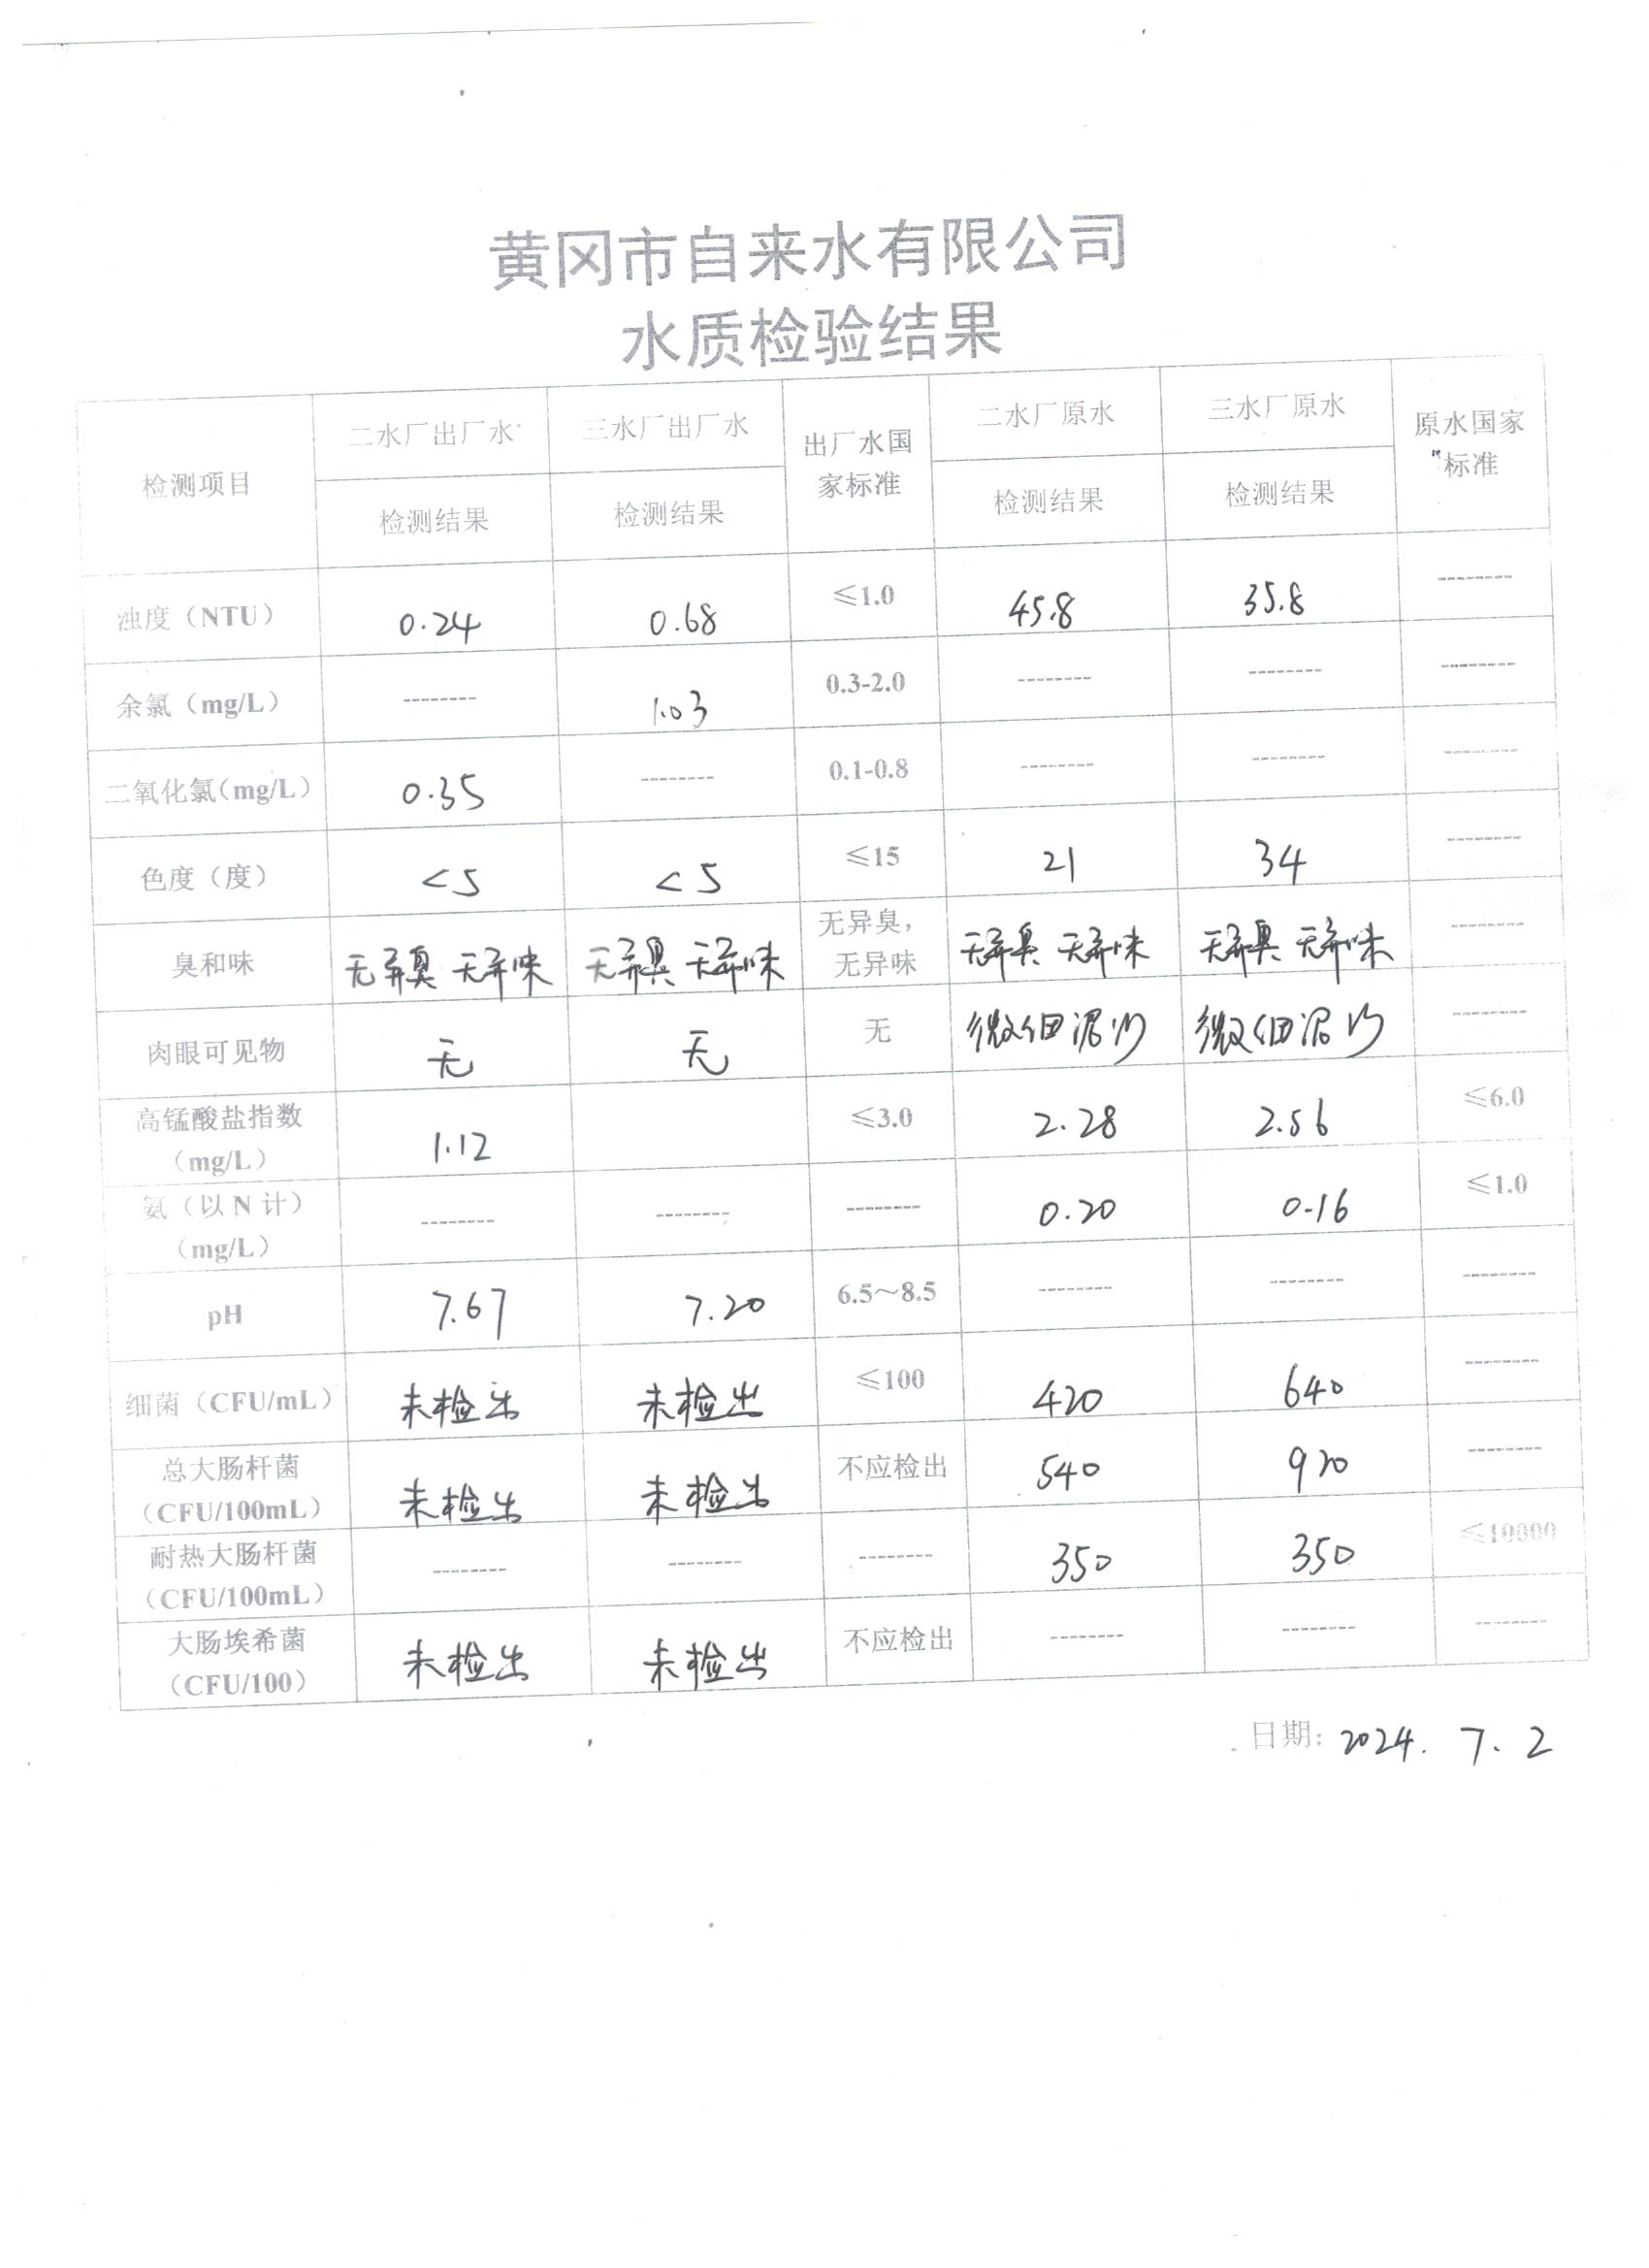 黄冈市自来水有限公司
水质检验结果
检测项目 二水厂出厂水 三水厂出厂水 出厂水国家标准 二水厂原水 三水厂原水 原水国家标准
检测结果 检测结果 检测结果 检测结果
浊度（NTU） 0.24 0.68 ≤1.0 45.8 35.8 --------
余氯（mg/L） -------- 1.03 0.3-2.0 -------- -------- --------
二氧化氯（mg/L） 0.35 -------- 0.1-0.8 -------- -------- --------
色度（度） <5 <5 ≤15 21 34 --------
臭和味 无异臭 无异味 无异臭 无异味 无异臭，无异味 无异臭 无异味 无异臭 无异味 --------
肉眼可见物 无 无 无 微细泥沙 微细泥沙 --------
高锰酸盐指数（mg/L） 1.12 ≤3.0 2.28 2.56 ≤6.0
氨（以N计）（mg/L） -------- -------- -------- 0.20 0.16 ≤1.0
pH 7.67 7.20 6.5～8.5 -------- -------- --------
细菌（CFU/mL） 未检出 未检出 ≤100 420 640 --------
总大肠杆菌（CFU/100mL） 未检出 未检出 不应检出 540 920 --------
耐热大肠杆菌（CFU/100mL） -------- -------- -------- 350 350 ≤10000
大肠埃希菌（CFU/100） 未检出 未检出 不应检出 -------- -------- --------
日期: 2024. 7. 2